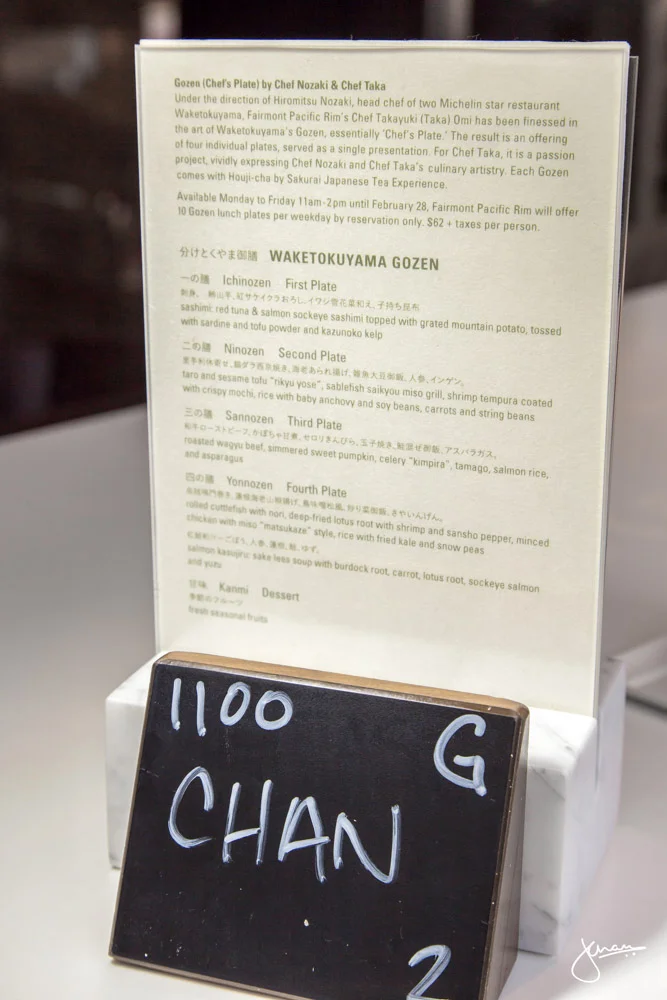 Gozen (Chef's Plate) by Chef Nozaki & Chef Taka
Under the direction of Hiromitsu Nozaki, head chef of two Michelin star restaurant
Waketokuyama, Fairmont Pacific Rim's Chef Takayuki (Taka) Omi has been finessed in
the art of Waketokuyama's Gozen, essentially 'Chef's Plate.' The result is an offering
of four individual plates, served as a single presentation. For Chef Taka, it is a passion
project, vividly expressing Chef Nozaki and Chef Taka's culinary artistry. Each Gozen
comes with Houji-cha by Sakurai Japanese Tea Experience.
Available Monday to Friday 11am-2pm until February 28, Fairmont Pacific Rim will offer
10 Gozen lunch plates per weekday by reservation only. $62 + taxes per person.
分けとくやま御膳 WAKETOKUYAMA GOZEN
一の膳 Ichinozen First Plate
刺身、 山芋、紅サケイクラおろし、イワシ雪花菜和え、子持ち昆布
sashimi: red tuna & salmon sockeye sashimi topped with grated mountain potato, tossed
with sardine and tofu powder and kazunoko kelp
二の膳 Ninozen Second Plate
里芋利休寄せ、銀ダラ西京焼き、海老あられ揚げ、雑魚大豆御飯、人参、インゲン。
taro and sesame tofu "rikyu yose", sablefish saikyou miso grill, shrimp tempura coated
with crispy mochi, rice with baby anchovy and soy beans, carrots and string beans
三の膳 Sannozen Third Plate
和牛ローストビーフ、かぼちゃ甘煮、セロリきんぴら、玉子焼き、鮭混ぜ御飯、アスパラガス。
roasted wagyu beef, simmered sweet pumpkin, celery "kimpira", tamago, salmon rice,
and asparagus
四の膳 Yonnozen Fourth Plate
鳴門巻き、蓮根海老山椒揚げ、鳥味噌松風、炒り菜御飯、さやいんげん。
rolled cuttlefish with nori, deep-fried lotus root with shrimp and sansho pepper, minced
chicken with miso "matsukaze" style, rice with fried kale and snow peas
ごぼう、人参、蓮根、鮭、ゆず。
salmon kasujiru: sake lees soup with burdock root, carrot, lotus root, sockeye salmon
and yuzu
甘味 Kanmi Dessert
季節のフルーツ
fresh seasonal fruits
1100
G
CHAN
2